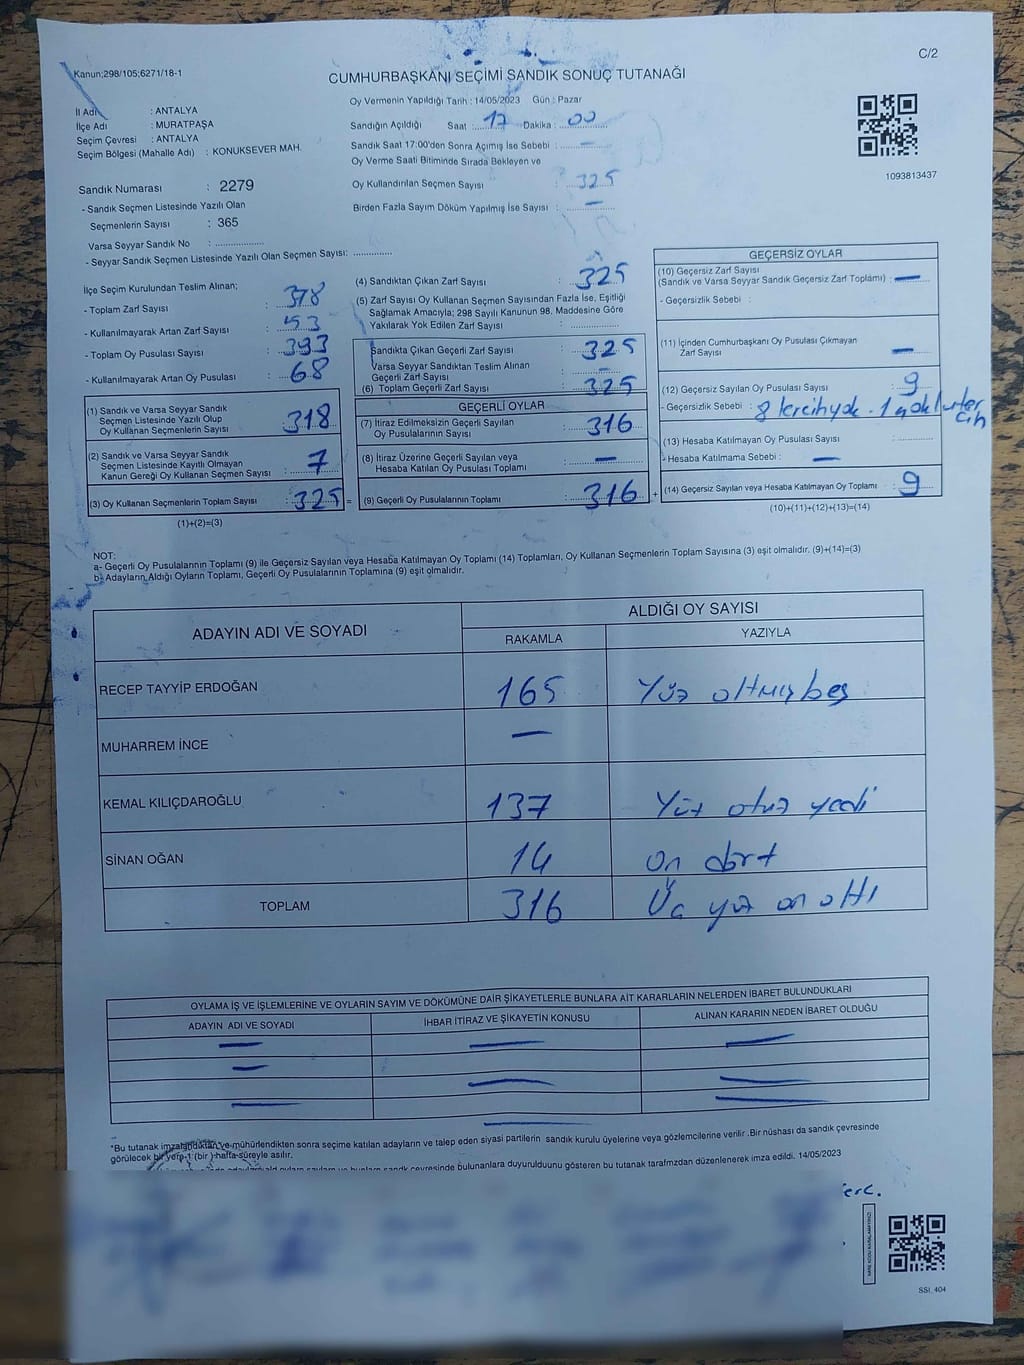 Kanun;298/105;6271/18-1
C/2
CUMHURBAŞKANI SEÇİMİ SANDIK SONUÇ TUTANAĞI
İl Adı : ANTALYA
İlçe Adı : MURATPAŞA
Seçim Çevresi : ANTALYA
Seçim Bölgesi (Mahalle Adı) : KONUKSEVER MAH.
Oy Vermenin Yapıldığı Tarih : 14/05/2023 Gün : Pazar
Sandığın Açıldığı Saat : 17 Dakika : 00
Sandık Saat 17:00'den Sonra Açımış İse Sebebi : —
Oy Verme Saati Bitiminde Sırada Bekleyen ve
Oy Kullandırılan Seçmen Sayısı : 325
Birden Fazla Sayım Döküm Yapılmış İse Sayısı : —
1093813437
Sandık Numarası : 2279
- Sandık Seçmen Listesinde Yazılı Olan
Seçmenlerin Sayısı : 365
Varsa Seyyar Sandık No : ..................
- Seyyar Sandık Seçmen Listesinde Yazılı Olan Seçmen Sayısı: ..............
İlçe Seçim Kurulundan Teslim Alınan;
- Toplam Zarf Sayısı : 378
- Kullanılmayarak Artan Zarf Sayısı : 53
- Toplam Oy Pusulası Sayısı : 393
- Kullanılmayarak Artan Oy Pusulası : 68
(1) Sandık ve Varsa Seyyar Sandık
Seçmen Listesinde Yazılı Olup
Oy Kullanan Seçmenlerin Sayısı : 318
(2) Sandık ve Varsa Seyyar Sandık
Seçmen Listesinde Kayıtlı Olmayan
Kanun Gereği Oy Kullanan Seçmen Sayısı : 7
(3) Oy Kullanan Seçmenlerin Toplam Sayısı : 325 =
(1)+(2)=(3)
(4) Sandıktan Çıkan Zarf Sayısı : 325
(5) Zarf Sayısı Oy Kullanan Seçmen Sayısından Fazla İse, Eşitliği
Sağlamak Amacıyla; 298 Sayılı Kanunun 98. Maddesine Göre
Yakılarak Yok Edilen Zarf Sayısı : ..................
Sandıkta Çıkan Geçerli Zarf Sayısı : 325
Varsa Seyyar Sandıktan Teslim Alınan
Geçerli Zarf Sayısı : —
(6) Toplam Geçerli Zarf Sayısı : 325
GEÇERLİ OYLAR
(7) İtiraz Edilmeksizin Geçerli Sayılan
Oy Pusulalarının Sayısı : 316
(8) İtiraz Üzerine Geçerli Sayılan veya
Hesaba Katılan Oy Pusulası Toplamı : —
(9) Geçerli Oy Pusulalarının Toplamı : 316 +
GEÇERSİZ OYLAR
(10) Geçersiz Zarf Sayısı
(Sandık ve Varsa Seyyar Sandık Geçersiz Zarf Toplamı) : —
- Geçersizlik Sebebi :
(11) İçinden Cumhurbaşkanı Oy Pusulası Çıkmayan
Zarf Sayısı : —
(12) Geçersiz Sayılan Oy Pusulası Sayısı : 9
- Geçersizlik Sebebi : 8 tercih yok . 1
(13) Hesaba Katılmayan Oy Pusulası Sayısı : ............
- Hesaba Katılmama Sebebi : —
(14) Geçersiz Sayılan veya Hesaba Katılmayan Oy Toplamı : 9
(10)+(11)+(12)+(13)=(14)
NOT:
a- Geçerli Oy Pusulalarının Toplamı (9) ile Geçersiz Sayılan veya Hesaba Katılmayan Oy Toplamı (14) Toplamları, Oy Kullanan Seçmenlerin Toplam Sayısına (3) eşit olmalıdır. (9)+(14)=(3)
b- Adayların Aldığı Oyların Toplamı, Geçerli Oy Pusulalarının Toplamına (9) eşit olmalıdır.
ADAYIN ADI VE SOYADI
ALDIĞI OY SAYISI
RAKAMLA YAZIYLA
RECEP TAYYİP ERDOĞAN 165 Yüz altmış beş
MUHARREM İNCE —
KEMAL KILIÇDAROĞLU 137 Yüz otuz yedi
SİNAN OĞAN 14 on dört
TOPLAM 316 Üç yüz on altı
OYLAMA İŞ VE İŞLEMLERİNE VE OYLARIN SAYIM VE DÖKÜMÜNE DAİR ŞİKAYETLERLE BUNLARA AİT KARARLARIN NELERDEN İBARET BULUNDUKLARI
ADAYIN ADI VE SOYADI İHBAR İTİRAZ VE ŞİKAYETİN KONUSU ALINAN KARARIN NEDEN İBARET OLDUĞU
— — —
—
— —
— — —
*Bu tutanak imzalandıktan ve mühürlendikten sonra seçime katılan adayların ve talep eden siyasi partilerin sandık kurulu üyelerine veya gözlemcilerine verilir .Bir nüshası da sandık çevresinde
görülecek bir yere 1 (bir ) hafta süreyle asılır.
sandık çevresinde bulunanlara duyurulduunu gösteren bu tutanak tarafmzdan düzenlenerek imza edildi. 14/05/2023
SSI, 404